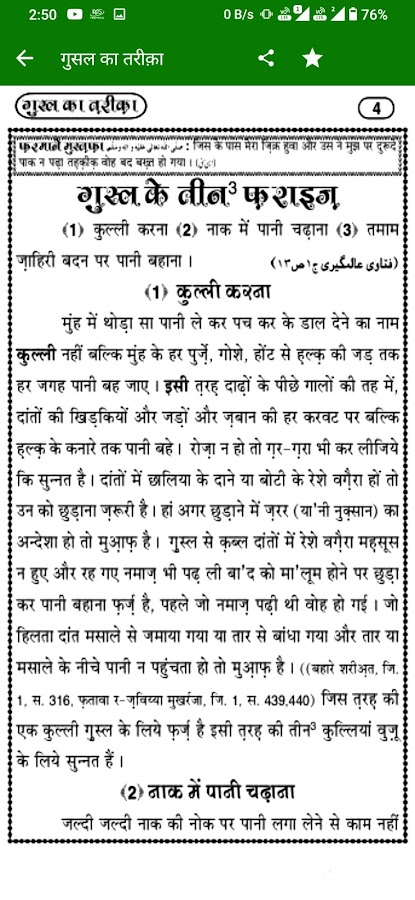 2:50
0 B/s
76%
गुसल का तरीक़ा
गुस्ल का तरीक़ा
4
फ़रमाने मुस्तफ़ा : जिस के पास मेरा ज़िक्र हुवा और उस ने मुझ पर दुरूदे
पाक न पढ़ा तहक़ीक़ वोह बद बख़्त हो गया।
गुस्ल के तीन³ फ़राइज़
(1) कुल्ली करना (2) नाक में पानी चढ़ाना (3) तमाम
ज़ाहिरी बदन पर पानी बहाना। (فتاوى عالمگيرى ج١ص١٣)
(1) कुल्ली करना
मुंह में थोड़ा सा पानी ले कर पच कर के डाल देने का नाम
कुल्ली नहीं बल्कि मुंह के हर पुर्ज़े, गोशे, होंट से ह़ल्क़ की जड़ तक
हर जगह पानी बह जाए। इसी त़रह दाढ़ों के पीछे गालों की तह में,
दांतों की खिड़कियों और जड़ों और ज़बान की हर करवट पर बल्कि
ह़ल्क़ के कनारे तक पानी बहे। रोज़ा न हो तो ग़र-ग़रा भी कर लीजिये
कि सुन्नत है। दांतों में छालिया के दाने या बोटी के रेशे वग़ैरा हों तो
उन को छुड़ाना ज़रूरी है। हां अगर छुड़ाने में ज़रर (या'नी नुक़्सान) का
अन्देशा हो तो मुआ़फ़ है। गुस्ल से क़ब्ल दांतों में रेशे वग़ैरा मह़सूस
न हुए और रह गए नमाज़ भी पढ़ ली बा'द को मा'लूम होने पर छुड़ा
कर पानी बहाना फ़र्ज़ है, पहले जो नमाज़ पढ़ी थी वोह हो गई। जो
हिलता दांत मसाले से जमाया गया या तार से बांधा गया और तार या
मसाले के नीचे पानी न पहुंचता हो तो मुआ़फ़ है। ((बहारे शरीअ़त, जि.
1, स. 316, फ़तावा र-ज़विय्या मुखर्रजा, जि. 1, स. 439,440) जिस त़रह़ की
एक कुल्ली गुस्ल के लिये फ़र्ज़ है इसी त़रह़ की तीन³ कुल्लियां वुज़ू
के लिये सुन्नत हैं।
(2) नाक में पानी चढ़ाना
जल्दी जल्दी नाक की नोक पर पानी लगा लेने से काम नहीं